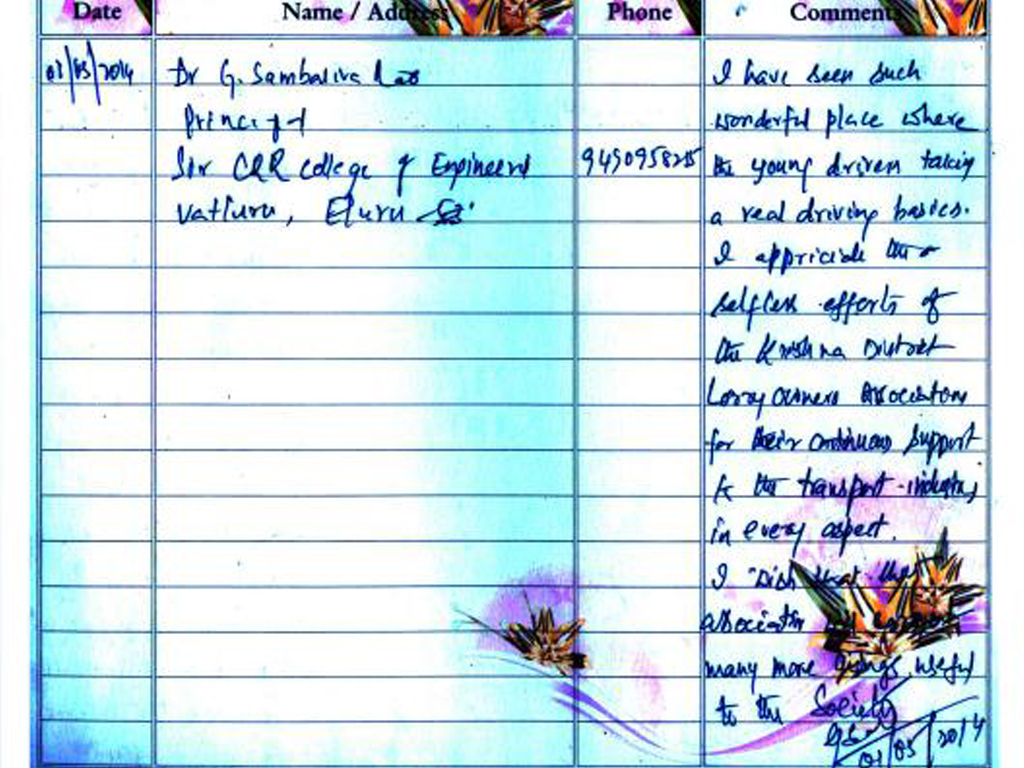 Date Name / Address Phone Comments
01/03/2014 Dr G. Sambasiva Rao I have seen such
Principal wonderful place where
Sir CRR College of Engineering 9490958215 the young drivers taking
Vatluru, Eluru a real driving basics.
I appriciate the
selfless efforts of
the Krishna District
Lorry owners Association
for their continuous support
to the transport industry
in every aspect.
I wish that the
association
many more things useful
to the Society
01/03/2014